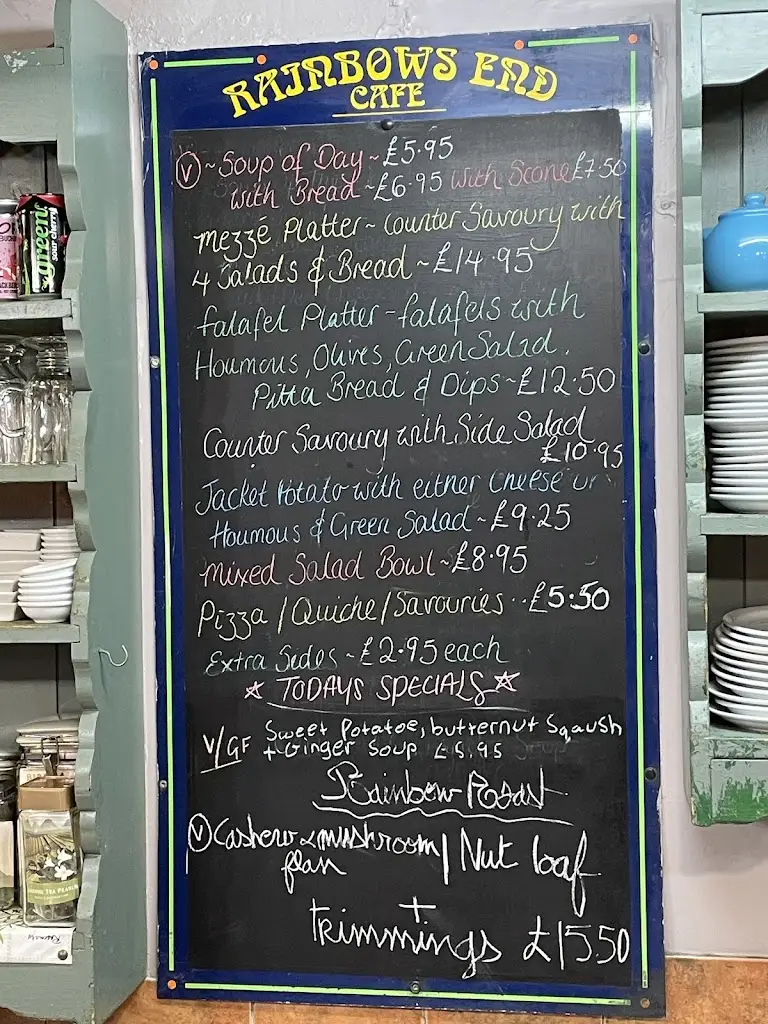 RAINBOWS END
CAFE
V ~ Soup of Day ~ £5.95
with Bread ~ £6.95 with Scone £7.50
Mezzé Platter ~ Counter Savoury with
4 Salads & Bread ~ £14.95
falafel Platter - falafels with
Houmous, Olives, Green Salad,
Pitta Bread & Dips ~ £12.50
Counter Savoury with Side Salad
£10.95
Jacket Potato with either Cheese or
Houmous & Green Salad ~ £9.25
Mixed Salad Bowl ~ £8.95
Pizza / Quiche / Savouries .. £5.50
Extra Sides ~ £2.95 each
☆ TODAYS SPECIALS ☆
V/GF Sweet Potatoe, butternut Sqaush
+ Ginger Soup £5.95
Rainbow Roast
V Cashew & mushroom / Nut loaf
flan
+
trimmings £15.50
green
sour cherry